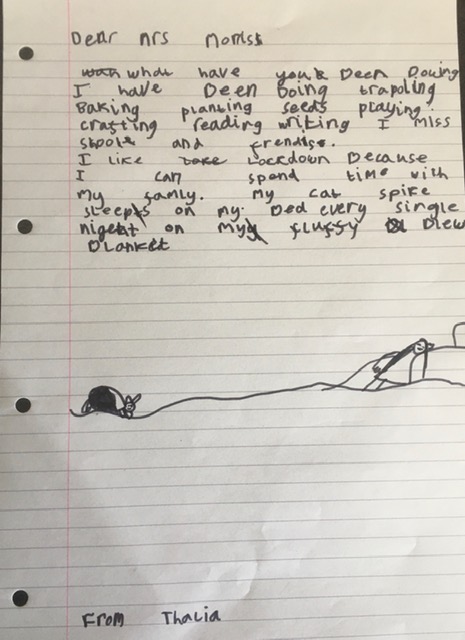 Dear mrs morriss
wah what have you Deen Dowing
I have Deen Doing trapoling
Baking planting seeds playing.
crafting reading writing I miss
skools and frendiss.
I like Lockdown Decause
I can spend time with
my famly. my cat spike
sleeps on my Ded every single
night on my fluffy Dlew
Dlanket
From Thalia